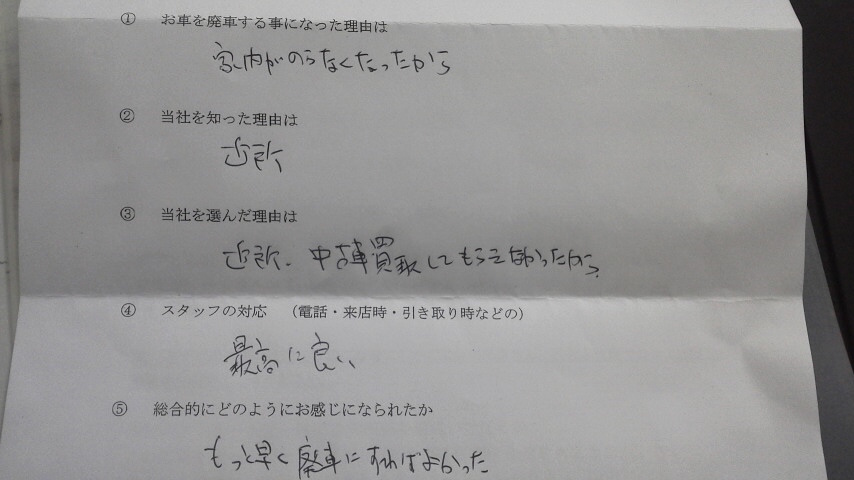 ① お車を廃車する事になった理由は
家内がのらなくなったから
② 当社を知った理由は
近所
③ 当社を選んだ理由は
近所、中古車買取してもらえなかったから
④ スタッフの対応 （電話・来店時・引き取り時などの）
最高に良い
⑤ 総合的にどのようにお感じになられたか
もっと早く廃車にすればよかった